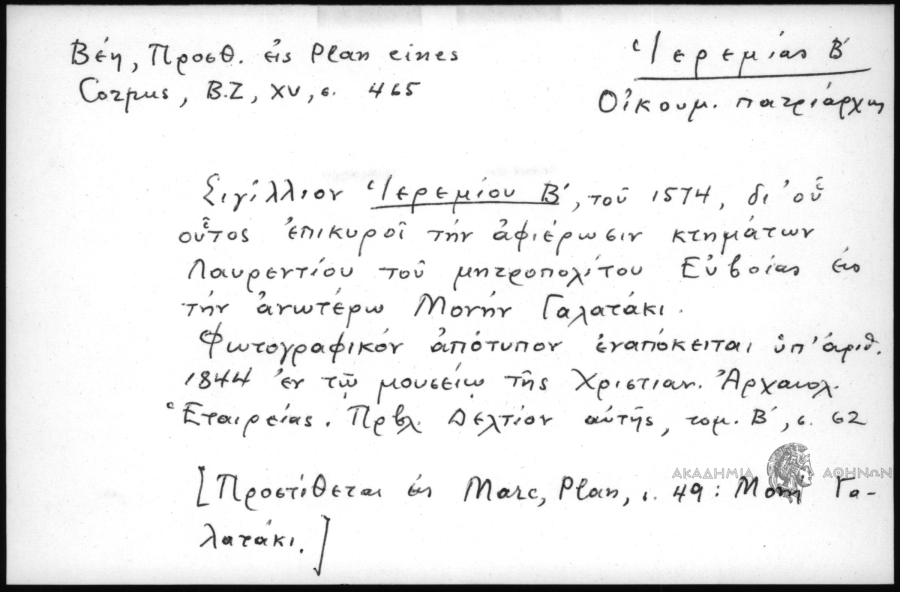 Βέη, Προσθ. εἰς Plan eines
Corpus, B.Z, XV, σ. 465
Ἱερεμίας Β΄
Οἰκουμ. πατριάρχης
Σιγίλλιον Ἱερεμίου Β΄, τοῦ 1574, δι' οὗ
οὗτος ἐπικυροῖ τὴν ἀφιέρωσιν κτημάτων
Λαυρεντίου τοῦ μητροπολίτου Εὐβοίας εἰς
τὴν ἀνωτέρω Μονὴν Γαλατάκι.
Φωτογραφικὸν ἀπότυπον ἐναπόκειται ὑπ' ἀριθ.
1844 ἐν τῷ μουσείῳ τῆς Χριστιαν. Ἀρχαιολ.
Ἑταιρείας. Πρβλ. Δελτίον αὐτῆς, τομ. Β΄, σ. 62
ΑΚΑΔΗΜΙΑ ΑΘΗΝΩΝ
[Προστίθεται εἰς Marc, Plan, σ. 49: Μονὴ Γα-
λατάκι.]